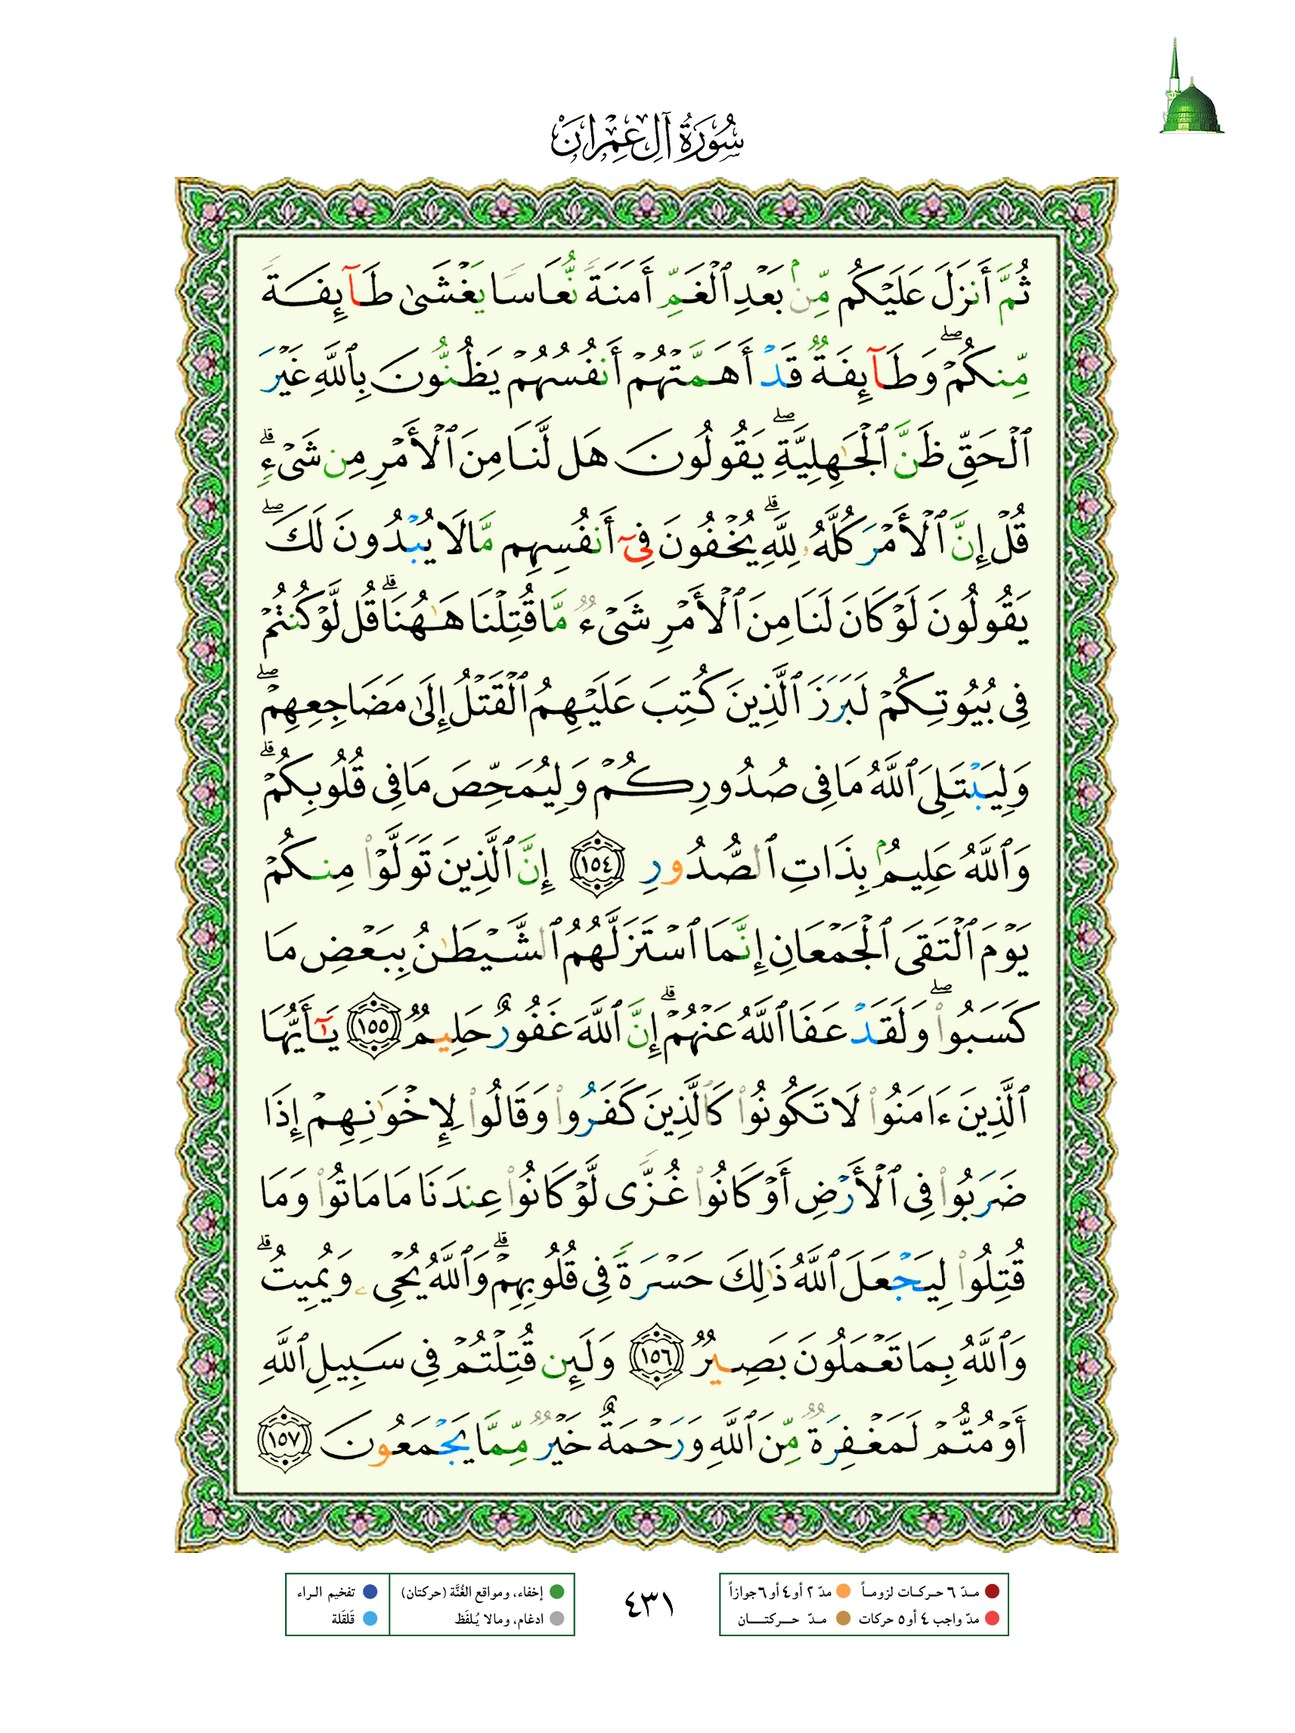 سُورَةُ آلِ عِمْرَانَ
ثُمَّ أَنزَلَ عَلَيْكُم مِّنۢ بَعْدِ ٱلْغَمِّ أَمَنَةً نُّعَاسًا يَغْشَىٰ طَآئِفَةً
مِّنكُمْ ۖ وَطَآئِفَةٌ قَدْ أَهَمَّتْهُمْ أَنفُسُهُمْ يَظُنُّونَ بِٱللَّهِ غَيْرَ
ٱلْحَقِّ ظَنَّ ٱلْجَٰهِلِيَّةِ ۖ يَقُولُونَ هَل لَّنَا مِنَ ٱلْأَمْرِ مِن شَىْءٍ ۗ
قُلْ إِنَّ ٱلْأَمْرَ كُلَّهُۥ لِلَّهِ ۗ يُخْفُونَ فِىٓ أَنفُسِهِم مَّا لَا يُبْدُونَ لَكَ ۖ
يَقُولُونَ لَوْ كَانَ لَنَا مِنَ ٱلْأَمْرِ شَىْءٌ مَّا قُتِلْنَا هَٰهُنَا ۗ قُل لَّوْ كُنتُمْ
فِى بُيُوتِكُمْ لَبَرَزَ ٱلَّذِينَ كُتِبَ عَلَيْهِمُ ٱلْقَتْلُ إِلَىٰ مَضَاجِعِهِمْ ۖ
وَلِيَبْتَلِىَ ٱللَّهُ مَا فِى صُدُورِكُمْ وَلِيُمَحِّصَ مَا فِى قُلُوبِكُمْ ۗ
وَٱللَّهُ عَلِيمٌۢ بِذَاتِ ٱلصُّدُورِ ١٥٤ إِنَّ ٱلَّذِينَ تَوَلَّوْا۟ مِنكُمْ
يَوْمَ ٱلْتَقَى ٱلْجَمْعَانِ إِنَّمَا ٱسْتَزَلَّهُمُ ٱلشَّيْطَٰنُ بِبَعْضِ مَا
كَسَبُوا۟ ۖ وَلَقَدْ عَفَا ٱللَّهُ عَنْهُمْ ۗ إِنَّ ٱللَّهَ غَفُورٌ حَلِيمٌ ١٥٥ يَٰٓأَيُّهَا
ٱلَّذِينَ ءَامَنُوا۟ لَا تَكُونُوا۟ كَٱلَّذِينَ كَفَرُوا۟ وَقَالُوا۟ لِإِخْوَٰنِهِمْ إِذَا
ضَرَبُوا۟ فِى ٱلْأَرْضِ أَوْ كَانُوا۟ غُزًّى لَّوْ كَانُوا۟ عِندَنَا مَا مَاتُوا۟ وَمَا
قُتِلُوا۟ لِيَجْعَلَ ٱللَّهُ ذَٰلِكَ حَسْرَةً فِى قُلُوبِهِمْ ۗ وَٱللَّهُ يُحْىِۦ وَيُمِيتُ ۗ
وَٱللَّهُ بِمَا تَعْمَلُونَ بَصِيرٌ ١٥٦ وَلَئِن قُتِلْتُمْ فِى سَبِيلِ ٱللَّهِ
أَوْ مُتُّمْ لَمَغْفِرَةٌ مِّنَ ٱللَّهِ وَرَحْمَةٌ خَيْرٌ مِّمَّا يَجْمَعُونَ ١٥٧
مدّ ٦ حركات لزوماً مدّ ٢ أو ٤ أو ٦ جوازاً
مدّ واجب ٤ أو ٥ حركات مدّ حركتان
٤٣١
إخفاء، ومواقع الغُنَّة (حركتان) تفخيم الراء
ادغام، ومالا يُلفَظ قَلقَلة